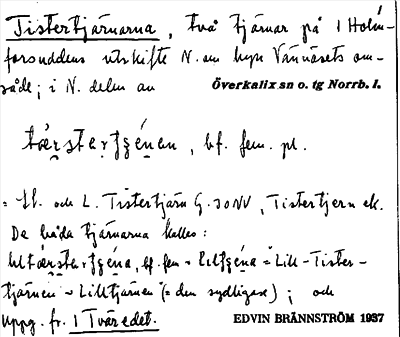 Tistertjärnarna, två tjärnar på 1 Holm-
forsuddens utskifte N. om byn Vännäsets om-
råde; i N. delen av Överkalix sn o. tg Norrb. l.
bf. fem. pl.
= st. och L. Tistertjärn G. 30 NV, Tistertjern ek.
De båda tjärnarna kallas:
bf. fem = = Lill-Tister-
tjärnen ~ Lilltjärnen (= den sydligare); och
Uppg. fr. 1 Tväredet. EDVIN BRÄNNSTRÖM 1937